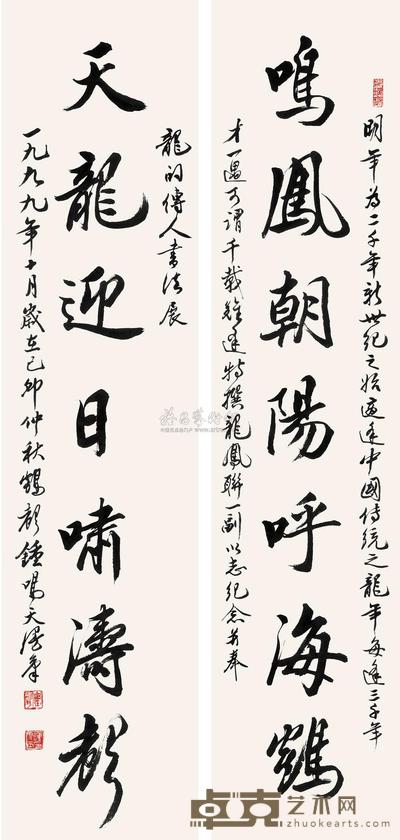 鳴鳳朝陽呼海鶴
天龍迎日嘯濤聲
明年為二千年新世紀之始適逢中國傳統之龍年每逢三千年
才一遇可謂千載難逢特撰龍鳳聯一副以志紀念並奉
龍的傳人書法展
一九九九年十月歲在己卯仲秋鶴
卓克艺术网
zhuokearts.com